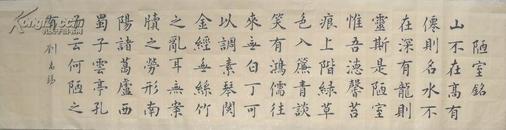 陋室銘
山不在高有
僊則名水不
在深有龍則
靈斯是陋室
惟吾德馨苔
痕上階綠草
色入簾青談
笑有鴻儒往
來無白丁可
以調素琴閱
金經無絲竹
之亂耳無案
牘之勞形南
陽諸葛廬西
蜀子雲亭孔
子云何陋之
有 劉禹錫